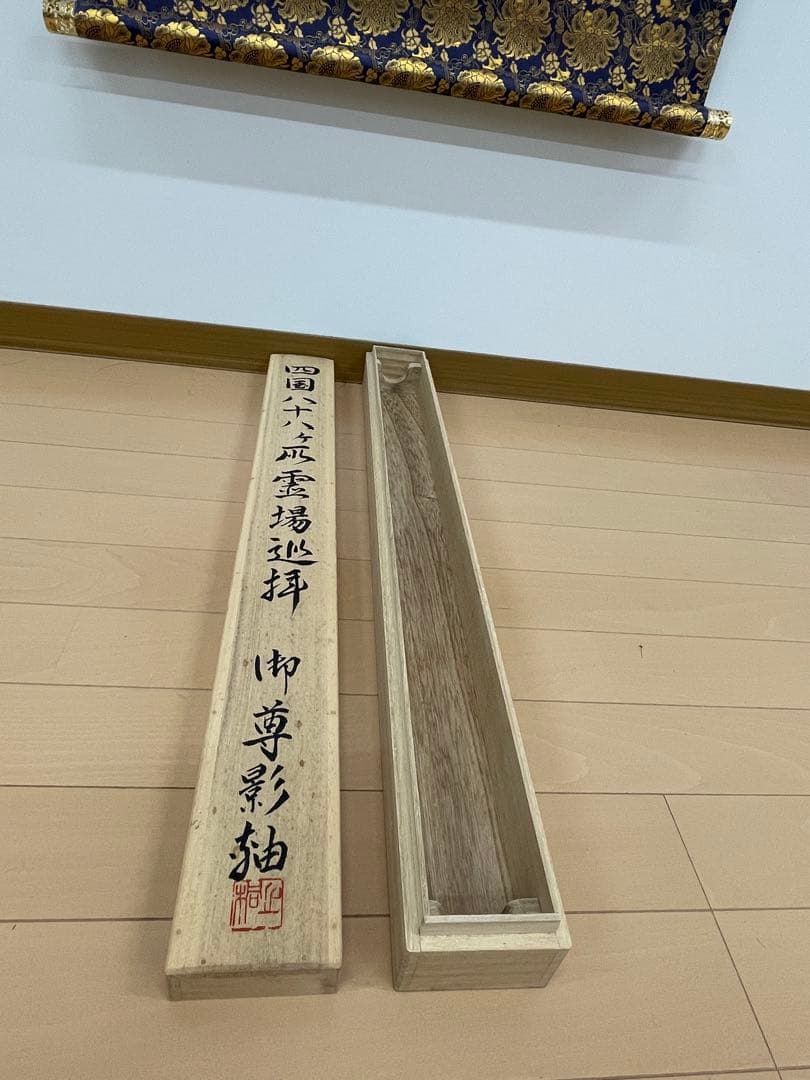 四国八十八ヶ所霊場巡拝 御尊影軸
正桐